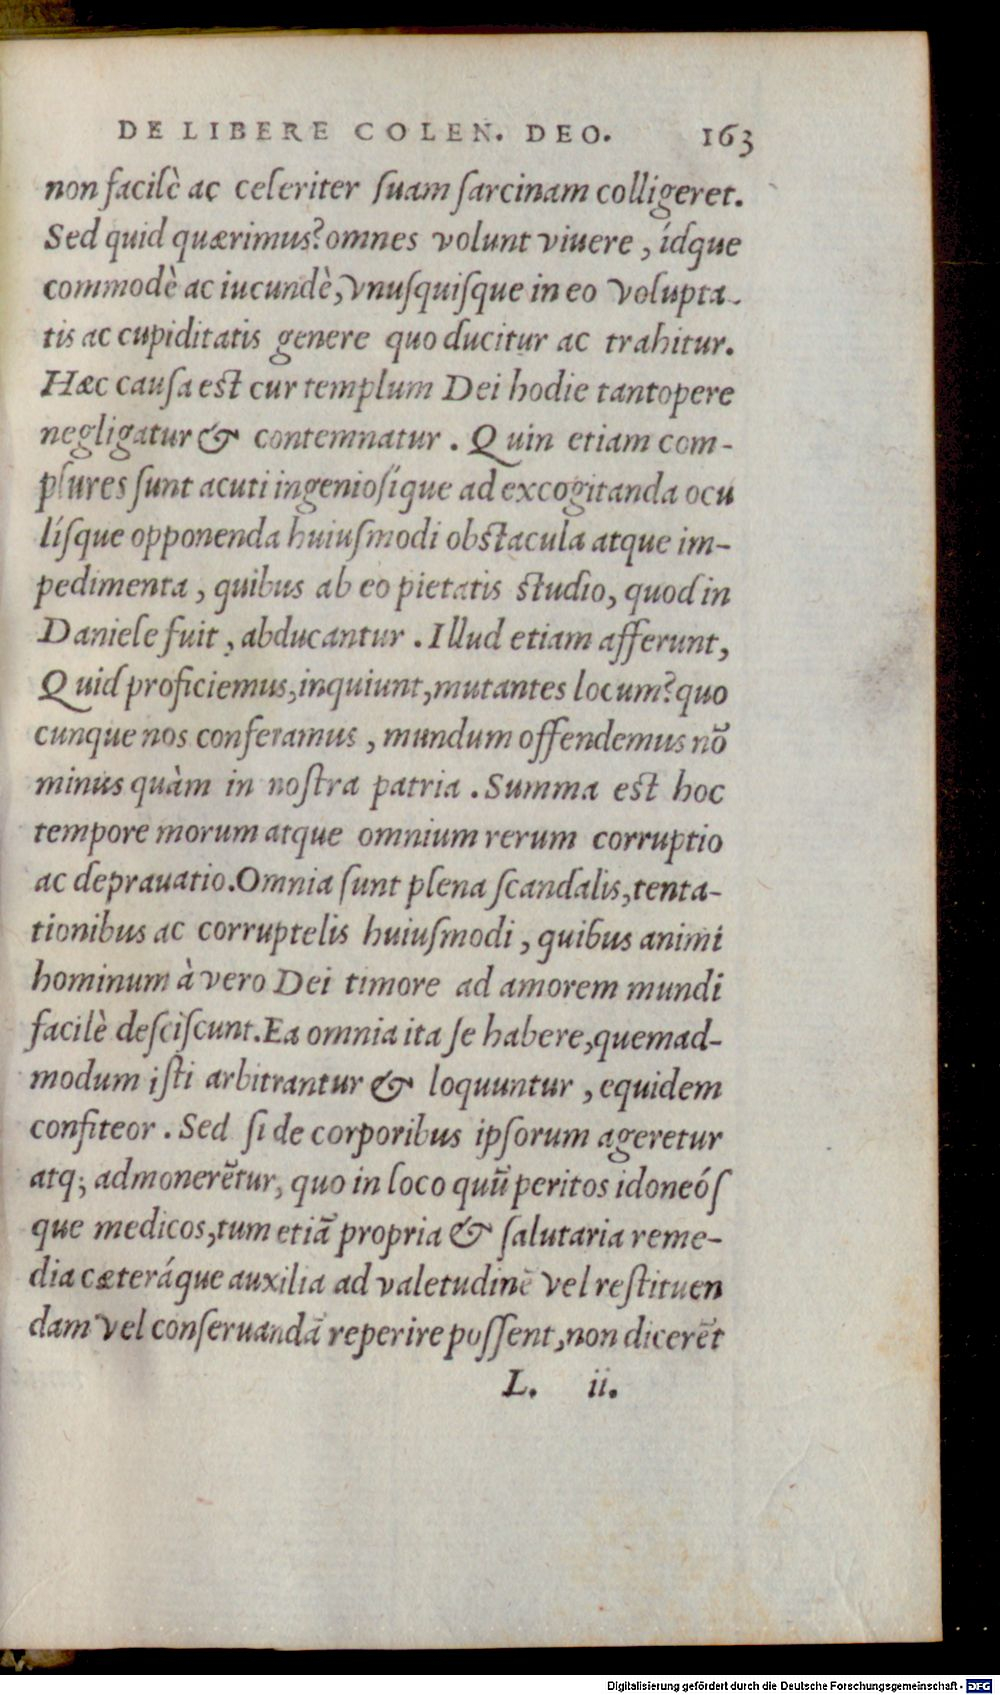 DE LIBERE COLEN. DEO. 163
non facilè ac celeriter ſuam ſarcinam colligeret.
Sed quid quærimus? omnes volunt viuere, ídque
commodè ac iucundè, vnuſquiſque in eo volupta-
tis ac cupiditatis genere quo ducitur ac trahitur.
Hæc cauſa eſt cur templum Dei hodie tantopere
negligatur & contemnatur. Quin etiam com-
plures ſunt acuti ingenioſíque ad excogitanda ocu
líſque opponenda huiuſmodi obſtacula atque im-
pedimenta, quibus ab eo pietatis ſtudio, quod in
Daniele fuit, abducantur. Illud etiam afferunt,
Quid proficiemus, inquiunt, mutantes locum? quo
cunque nos conferamus, mundum offendemus nō
minus quàm in noſtra patria. Summa eſt hoc
tempore morum atque omnium rerum corruptio
ac deprauatio. Omnia ſunt plena ſcandalis, tenta-
tionibus ac corruptelis huiuſmodi, quibus animi
hominum à vero Dei timore ad amorem mundi
facilè deſciſcunt. Ea omnia ita ſe habere, quemad-
modum iſti arbitrantur & loquuntur, equidem
confiteor. Sed ſi de corporibus ipſorum ageretur
atq; admonerētur, quo in loco quū peritos idoneóſ
que medicos, tum etiā propria & ſalutaria reme-
dia cæteráque auxilia ad valetudinē vel reſtituen
dam vel conſeruandā reperire poſſent, non dicerēt
L. ii.
Digitalisierung gefördert durch die Deutsche Forschungsgemeinschaft - DFG